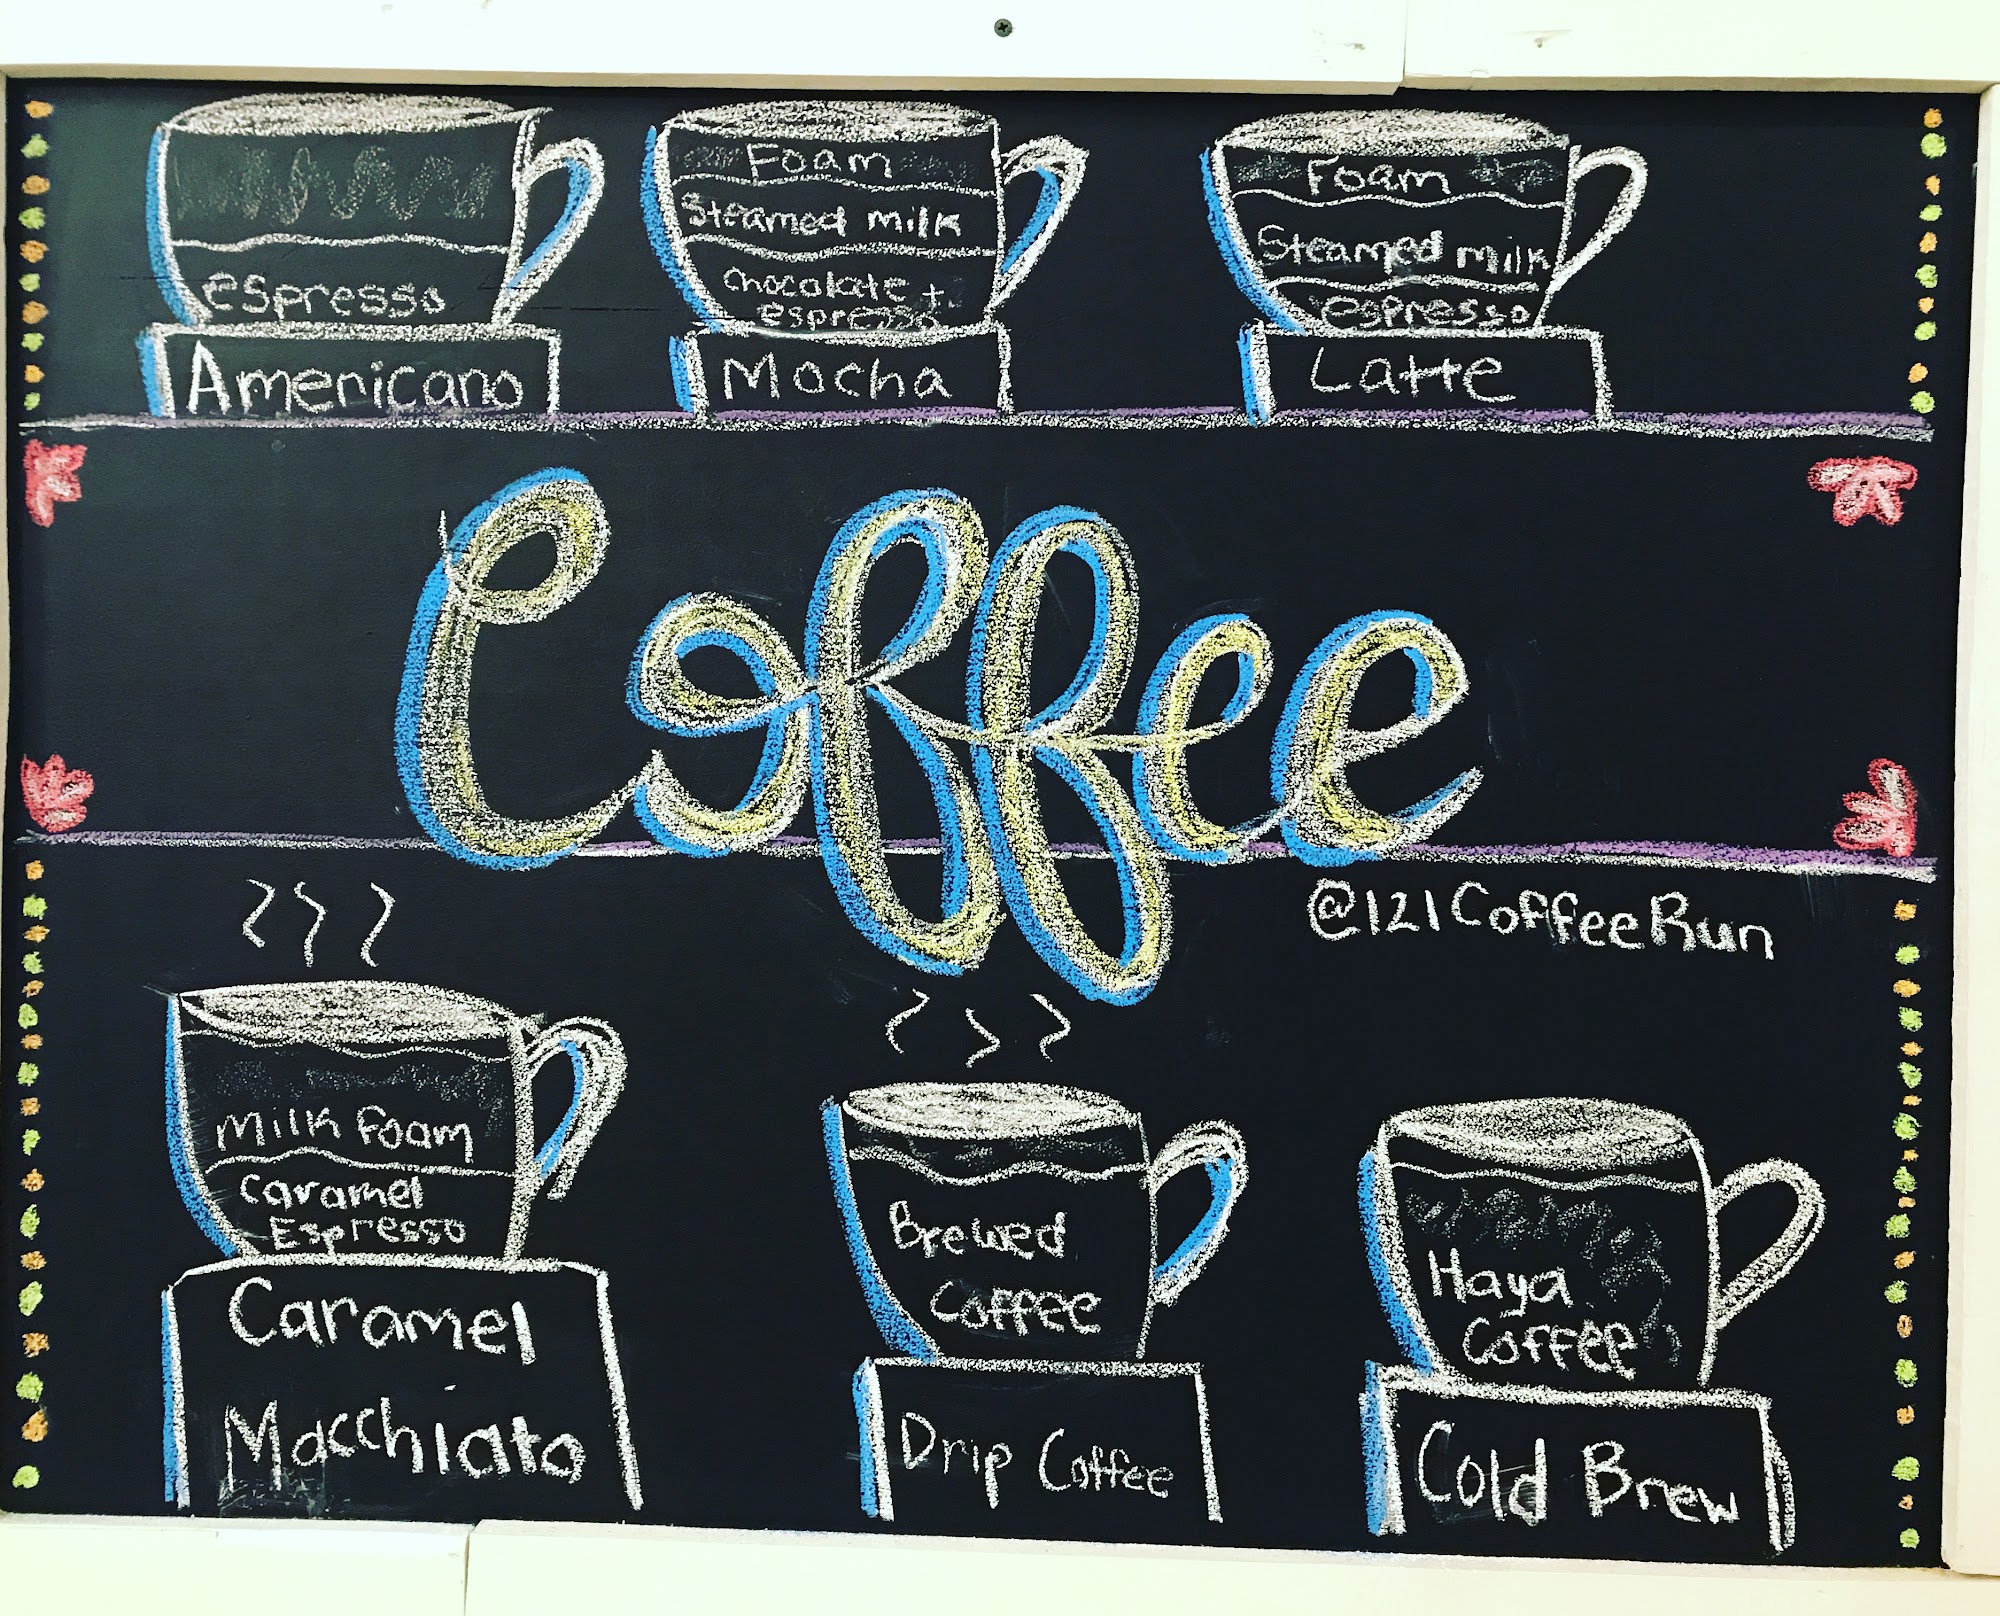 Foam
Steamed milk
Chocolate +
espresso
Foam
Steamed milk
espresso
espresso
Americano
Mocha
Latte
Coffee
@121CoffeeRun
Milk Foam
Caramel
Espresso
Caramel
Macchiato
Brewed
Coffee
Drip Coffee
Haya
Coffee
Cold Brew